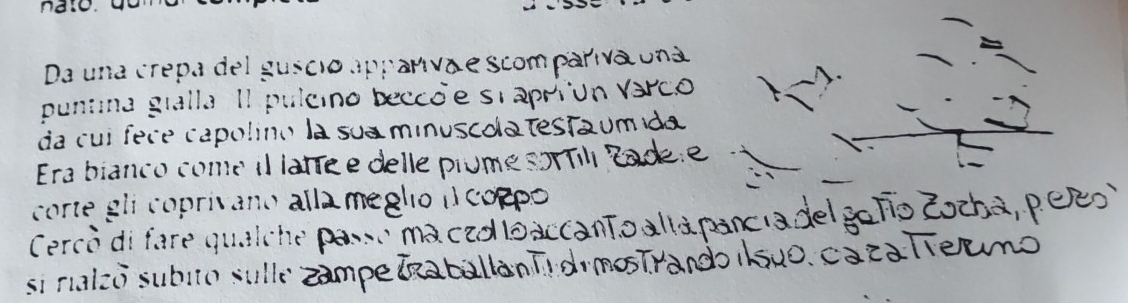 Da una crepa del guscio appariva e scompariva una
puntina gialla Il pulcino beccò e si aprì un varco
da cui fece capolino la sua minuscola testa umida
Era bianco come il latte e delle piume sottili rade e
corte gli coprivano alla meglio il corpo
Cercò di fare qualche passo ma crollò accanto alla pancia del gatto Zorba, però
si rialzò subito sulle zampe traballanti dimostrando il suo caratterino